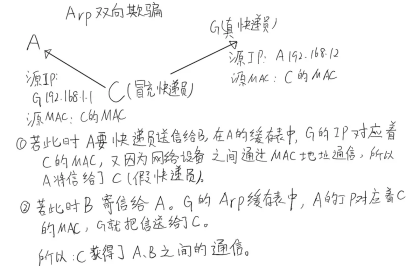 Arp 双向欺骗
G(真快递员)
A
源IP:
G 192.168.1.1
源MAC: C的MAC
C(冒充快递员)
源IP: A 192.168.1.2
源MAC: C的MAC
①若此时A要快递员送信给B,在A的缓存表中,G的IP对应着
C的MAC,又因为网络设备之间通过MAC地址通信,所以
A将信给了C(假快递员)。
②若此时B寄信给A。G的Arp缓存表中,A的IP对应着C
的MAC,G就把信送给了C。
所以:C获得了A.B之间的通信。